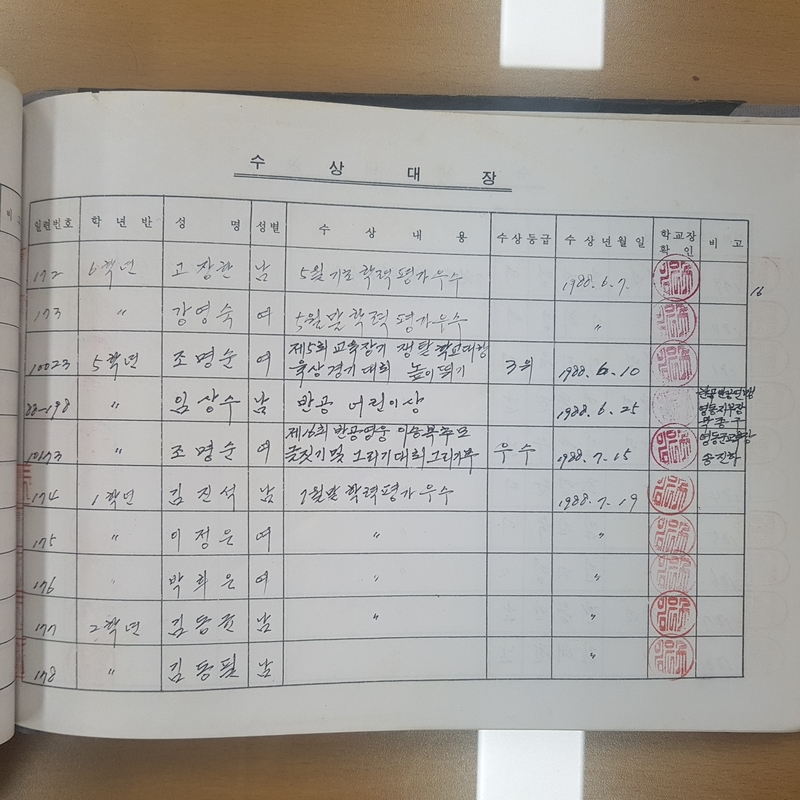 수 상 대 장
일련번호 학 년 반 성 명 성별 수 상 내 용 수상등급 수 상 년 월 일 학교장 확 인 비 고
172 6학년 고장한 남 5월 기초학력평가우수 1988. 6. 7.
16
173 〃 강영숙 여 5월말 학력평가우수 〃
10023 5학년 조명순 여 제5회 교육장기 쟁탈 학교대항
육상경기대회 높이뛰기 3위 1988. 6. 10
88-198 〃 임상수 남 반공 어린이상 1988. 6. 25
영동지부장
10173 〃 조명순 여 제16회 반공영웅 이승복추모
글짓기및 그리기대회 그리기부 우수 1988. 7. 15 영동군교육장
송진하
174 1학년 김진석 남 7월말 학력평가우수 1988. 7. 19
175 〃 이정은 여 〃 〃
176 〃 박희은 여 〃 〃
177 2학년 김동운 남 〃 〃
178 〃 김동필 남 〃